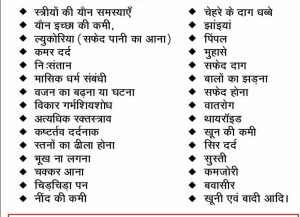 ◆ स्त्रीयों की यौन समस्याएँ
◆ यौन इच्छा की कमी,
◆ ल्युकोरिया (सफेद पानी का आना)
◆ कमर दर्द
◆ निःसंतान
◆ मासिक धर्म संबंधी
◆ वजन का बढ़ना या घटना
◆ विकार गर्भशियशोध
◆ अत्यधिक रक्तस्त्राव
◆ कष्टर्तव दर्दनाक
◆ स्तनों का ढीला होना
◆ भूख ना लगना
◆ चक्कर आना
◆ चिड़चिड़ा पन
◆ नींद की कमी
◆ चेहरे के दाग धब्बे
◆ झांइयां
◆ पिंपल
◆ मुहासे
◆ सफेद दाग
◆ बालों का झड़ना
◆ सफेद होना
◆ वातरोग
◆ थायरॉइड
◆ खून की कमी
◆ सिर दर्द
◆ सुस्ती
◆ कमजोरी
◆ बवासीर
◆ खूनी एवं बादी आदि।